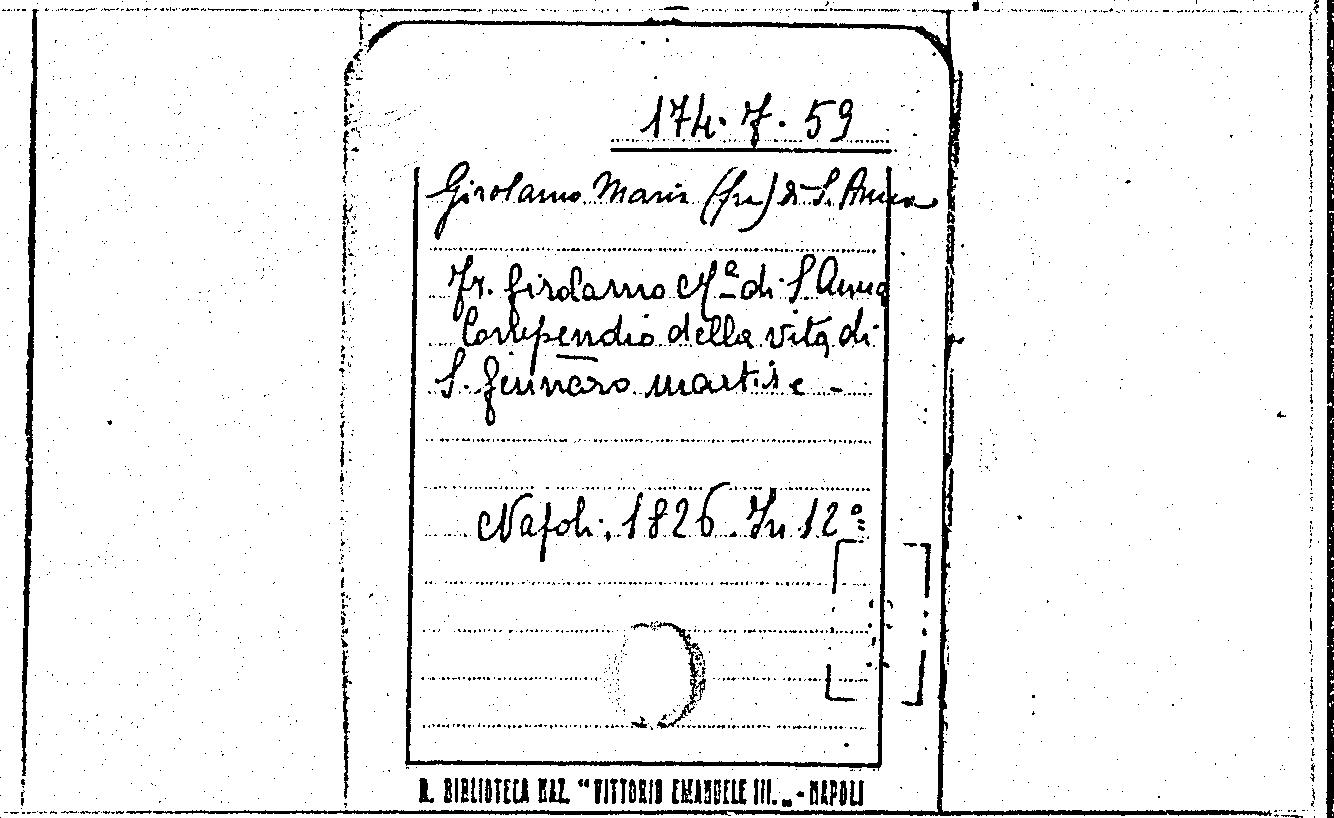 174.7.59
Girolamo Maria (fra) di S. Anna
Fr. Girolamo Mª di S. Anna
Compendio della vita di
S. Gennaro martire -
Napoli, 1826. In 12º
R. BIBLIOTECA NAZ. "VITTORIO EMANUELE III." - NAPOLI